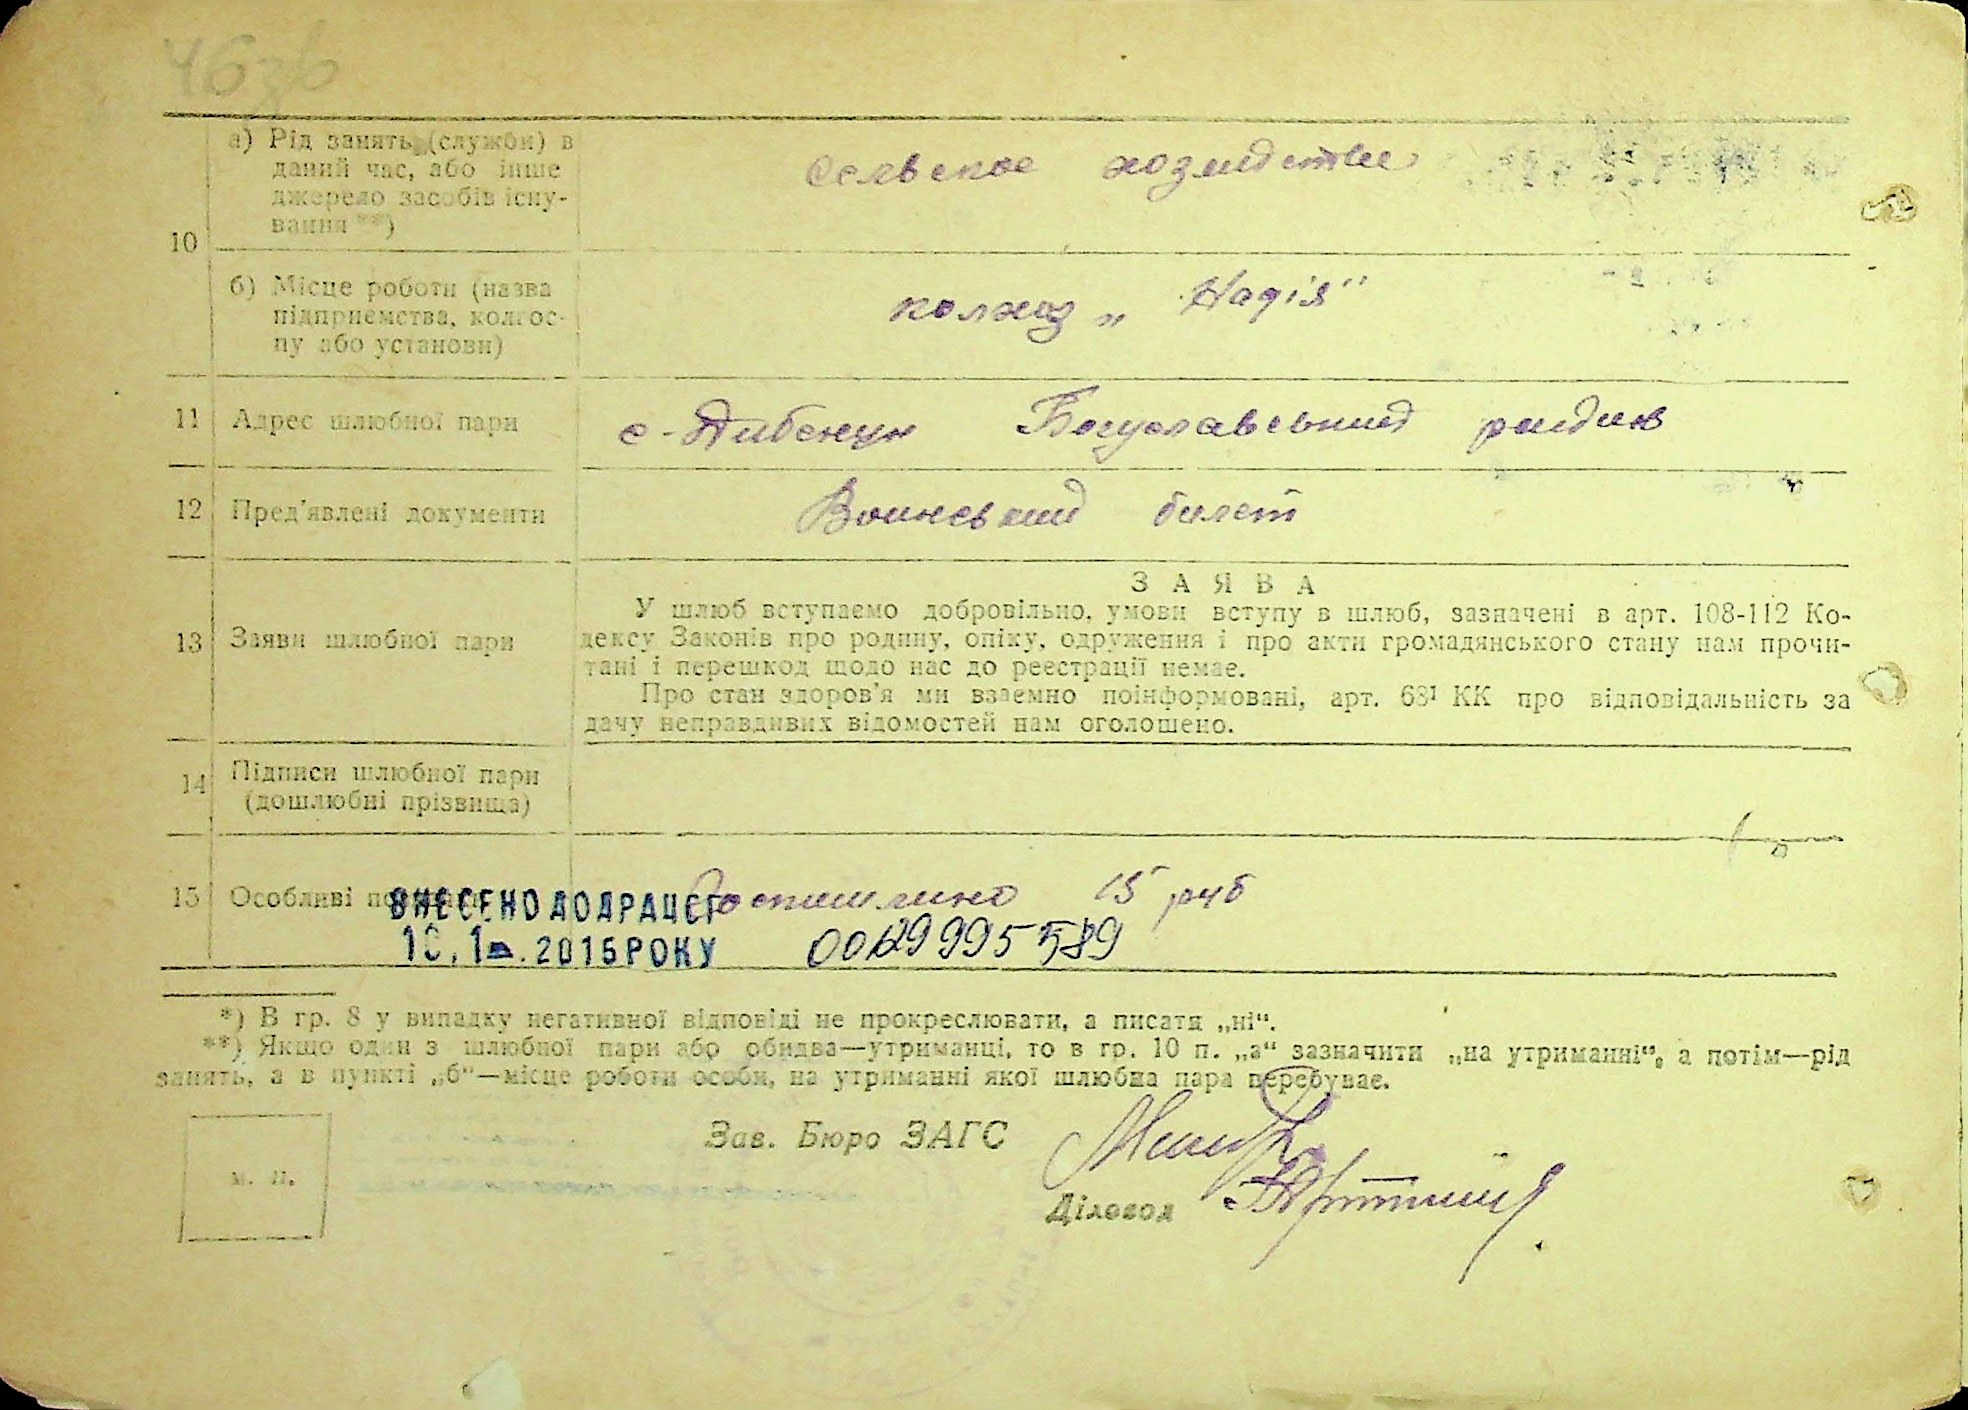 46зв
10
а) Рід занять (служби) в
даний час, або інше
джерело засобів існу-
вання **)
Сельское хозяйство
б) Місце роботи (назва
підприємства, колгос-
пу або установи)
колхоз „Надія"
11 Адрес шлюбної пари
с. Дибенци Богуславський район
12 Пред'явлені документи
Воинський билет
13 Заяви шлюбної пари
ЗАЯВА
У шлюб вступаємо добровільно, умови вступу в шлюб, зазначені в арт. 108-112 Ко-
дексу Законів про родину, опіку, одруження і про акти громадянського стану нам прочи-
тані і перешкод щодо нас до реєстрації немає.
Про стан здоров'я ми взаємно поінформовані, арт. 68¹ КК про відповідальність за
дачу неправдивих відомостей нам оголошено.
14 Підписи шлюбної пари
(дошлюбні прізвища)
15 Особливі
15 руб
ВНЕСЕНО ДО ДРАЦСГ
2015 РОКУ
*) В гр. 8 у випадку негативної відповіді не прокреслювати, а писати „ні“.
**) Якщо один з шлюбної пари або обидва—утриманці, то в гр. 10 п. „а“ зазначити „на утриманні“, а потім—рід
занять, а в пункті „б“—місце роботи особи, на утриманні якої шлюбна пара перебуває.
Зав. Бюро ЗАГС
Діловод
М. П.